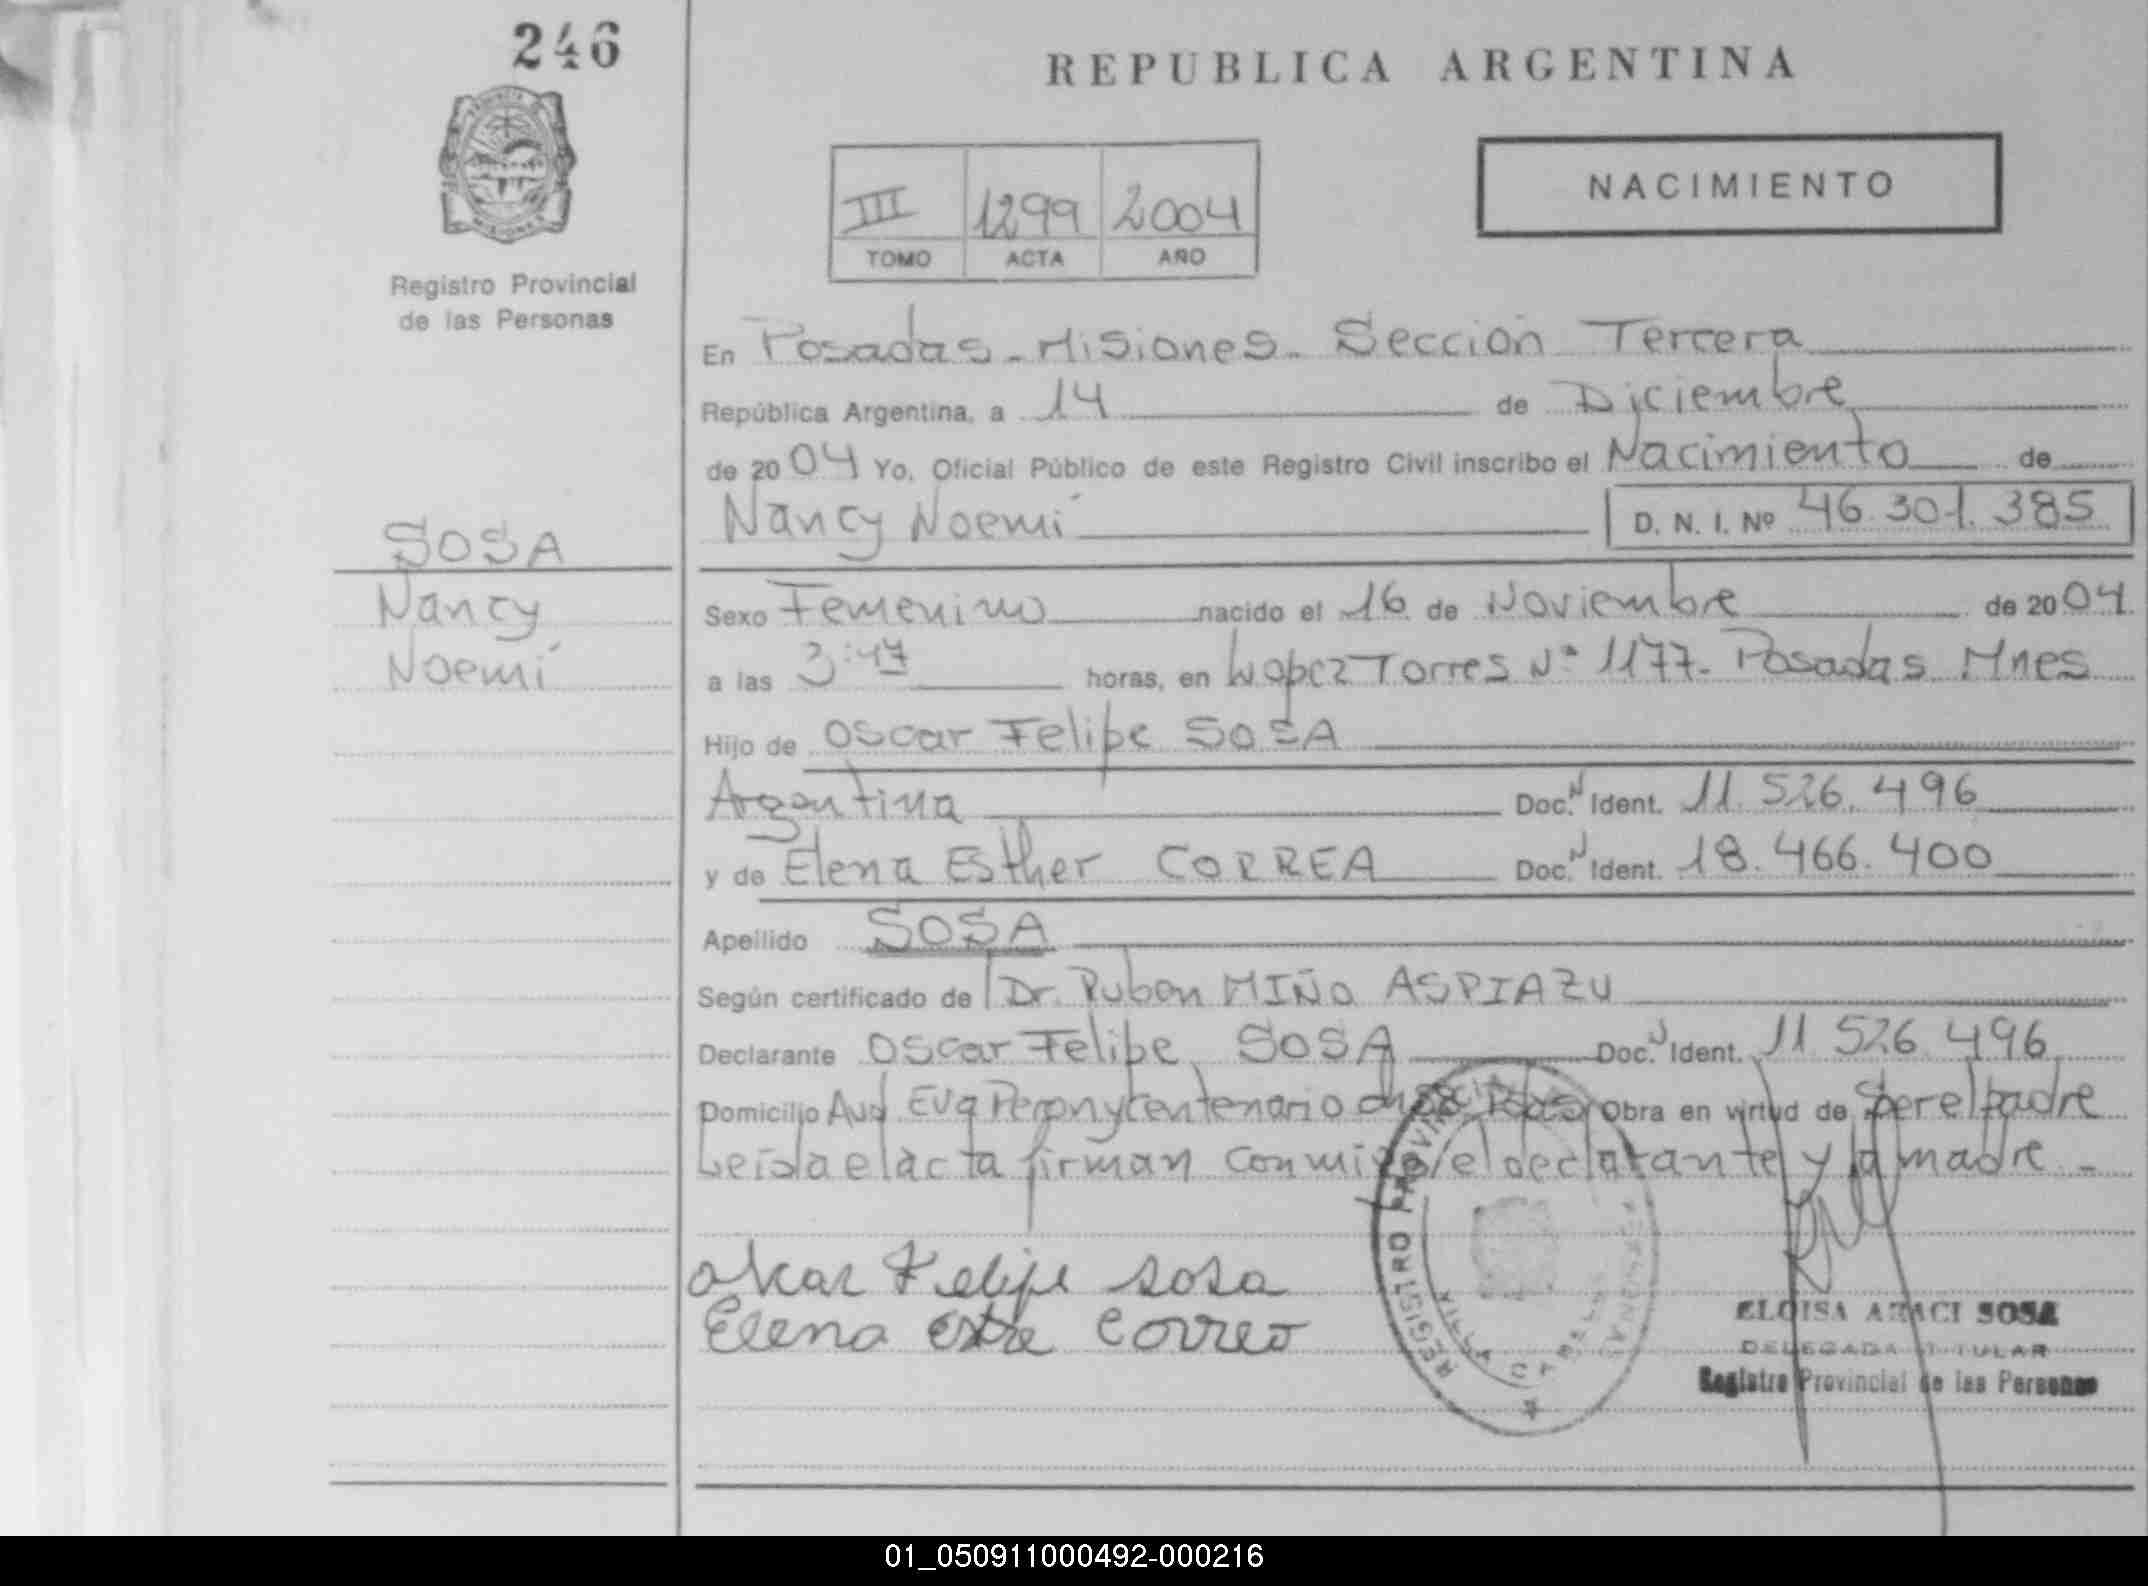 246
REPUBLICA ARGENTINA
PROVINCIA DE MISIONES
Registro Provincial
de las Personas
III 1299 2004
TOMO ACTA AÑO
NACIMIENTO
En Posadas - Misiones - Sección Tercera
República Argentina, a 14 de Diciembre
de 2004 Yo, Oficial Público de este Registro Civil inscribo el Nacimiento de
Nancy Noemí D. N. I. Nº 46.301.385
SOSA
Nancy
Noemí
Sexo Femenino nacido el 16 de Noviembre de 2004
a las 3:47 horas, en López Torres Nº 1177- Posadas Mnes
Hijo de Oscar Felipe SOSA
Argentina Doc. N Ident. 11.526.496
y de Elena Esther CORREA Doc. N Ident. 18.466.400
Apellido SOSA
Según certificado de Dr. Ruben MIÑO ASPIAZU
Declarante Oscar Felipe SOSA Doc. N Ident. 11.526.496
Domicilio Avd Eva Peron y Centenario Obra en virtud de ser el padre
Leída el acta firman conmigo el declarante y la madre -
oscar Felipe sosa
Elena Estre Correo
REGISTRO PROVINCIAL DE LAS PERSONAS
VILLA CABELLO
ELOISA ARACI SOSA
DELEGADA TITULAR
Registro Provincial de las Personas
01_050911000492-000216